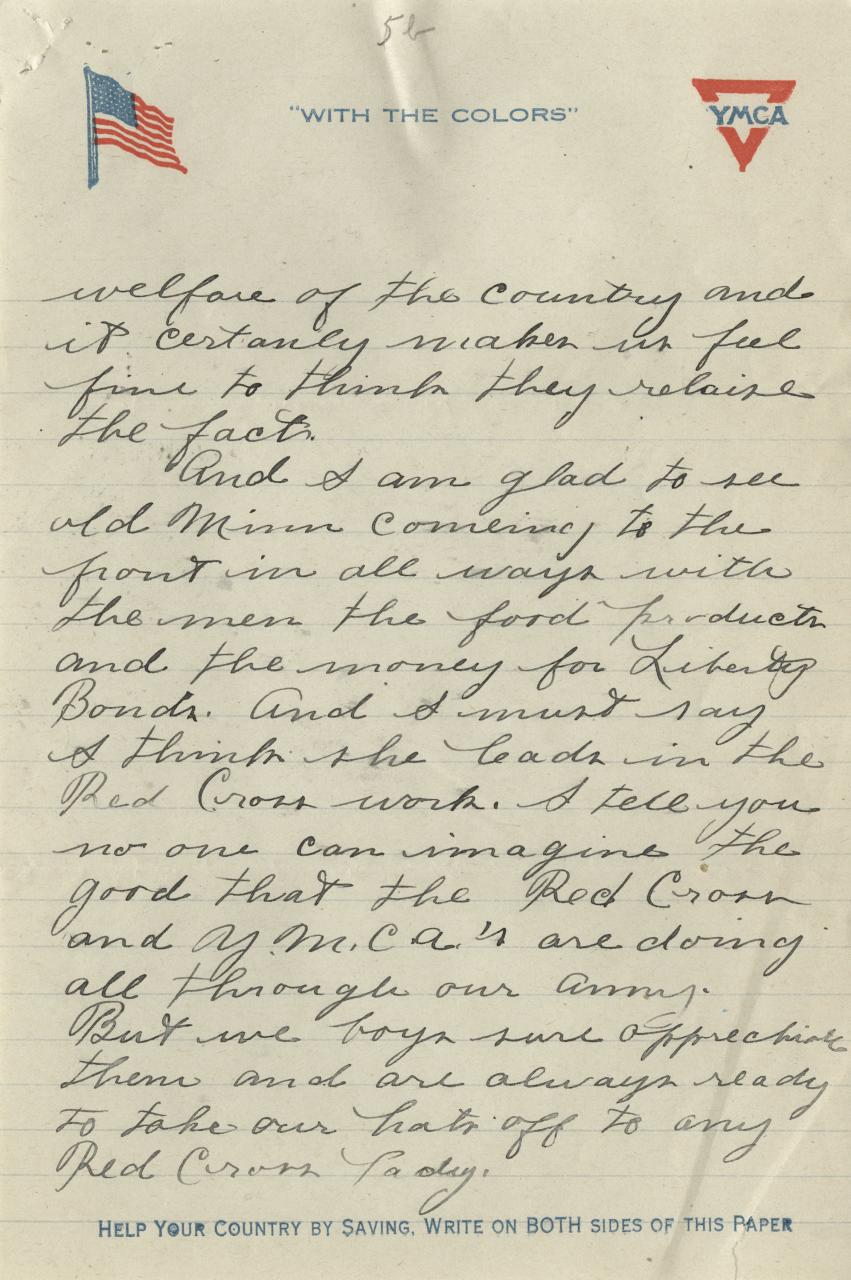 5b
"WITH THE COLORS"
YMCA
welfare of the country and
it certanly makes us feel
fine to think they relaise
the facts.
And I am glad to see
old Minn comeing to the
front in all ways with
the men the food products
and the money for Liberty
Bonds. And I must say
I think she leads in the
Red Cross work. I tell you
no one can imagine the
good that the Red Cross
and Y.M.C.A.'s are doing
all through our army.
But we boys sure apprechiate
them and are always ready
to take our hats off to any
Red Cross lady.
HELP YOUR COUNTRY BY SAVING, WRITE ON BOTH SIDES OF THIS PAPER